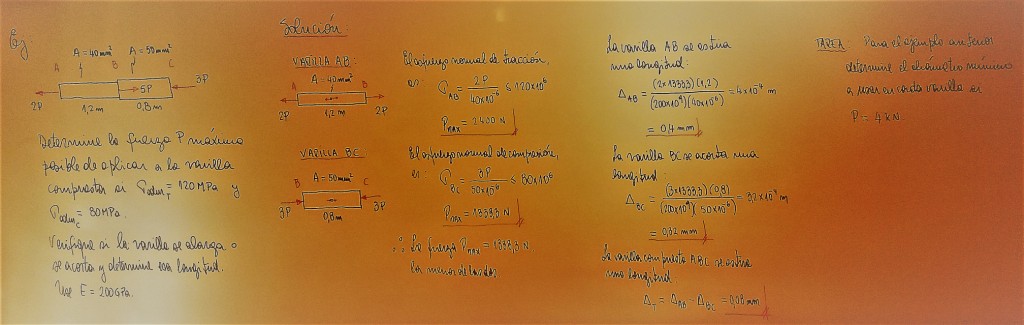 Ej:
A = 40mm² A = 50mm²
A B C
2P 5P 3P
1,2m 0,8m
Determine la fuerza P máxima
posible de aplicar a la varilla
compuesta si σadm_T = 120 MPa y
σadm_C = 80 MPa.
Verifique si la varilla se alarga o
se acorta y determine esa longitud.
Use E = 200 GPa.
Solución:
VARILLA AB:
A = 40mm²
A B
2P 1,2m 2P
VARILLA BC
A = 50mm²
B C
3P 0,8m 3P
El esfuerzo normal de tracción,
es: σ_AB = 2P / 40x10⁻⁶ ≤ 120x10⁶
Pmax = 2400 N
El esfuerzo normal de compresión,
es: σ_BC = 3P / 50x10⁻⁶ ≤ 80x10⁶
Pmax = 1333,3 N
∴ La fuerza Pmax = 1333,3 N
la menor de las dos
La varilla AB se estira
una longitud:
Δ_AB = (2x1333,3)(1,2) / (200x10⁹)(40x10⁻⁶) = 4x10⁻⁴ m
= 0,4 mm
La varilla BC se acorta una
longitud:
Δ_BC = (3x1333,3)(0,8) / (200x10⁹)(50x10⁻⁶) = 3,2x10⁻⁴ m
= 0,32 mm
La varilla compuesta ABC se estira
una longitud
Δ_T = Δ_AB - Δ_BC = 0,08 mm
TAREA: Para el ejemplo anterior
determine el diámetro mínimo
a usar en cada varilla si
P = 4 kN.